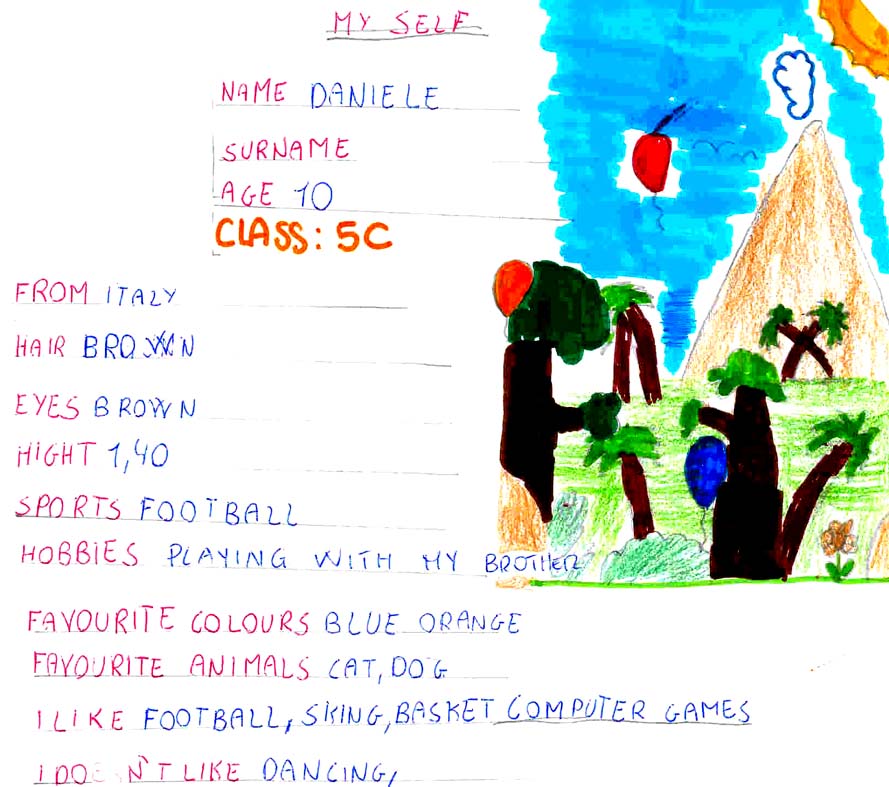 MY SELF
NAME DANIELE
SURNAME
AGE 10
CLASS: 5C
FROM ITALY
HAIR BROWN
EYES BROWN
HIGHT 1,40
SPORTS FOOTBALL
HOBBIES PLAYING WITH MY BROTHER
FAVOURITE COLOURS BLUE ORANGE
FAVOURITE ANIMALS CAT, DOG
I LIKE FOOTBALL, SKING, BASKET COMPUTER GAMES
I DON'T LIKE DANCING,